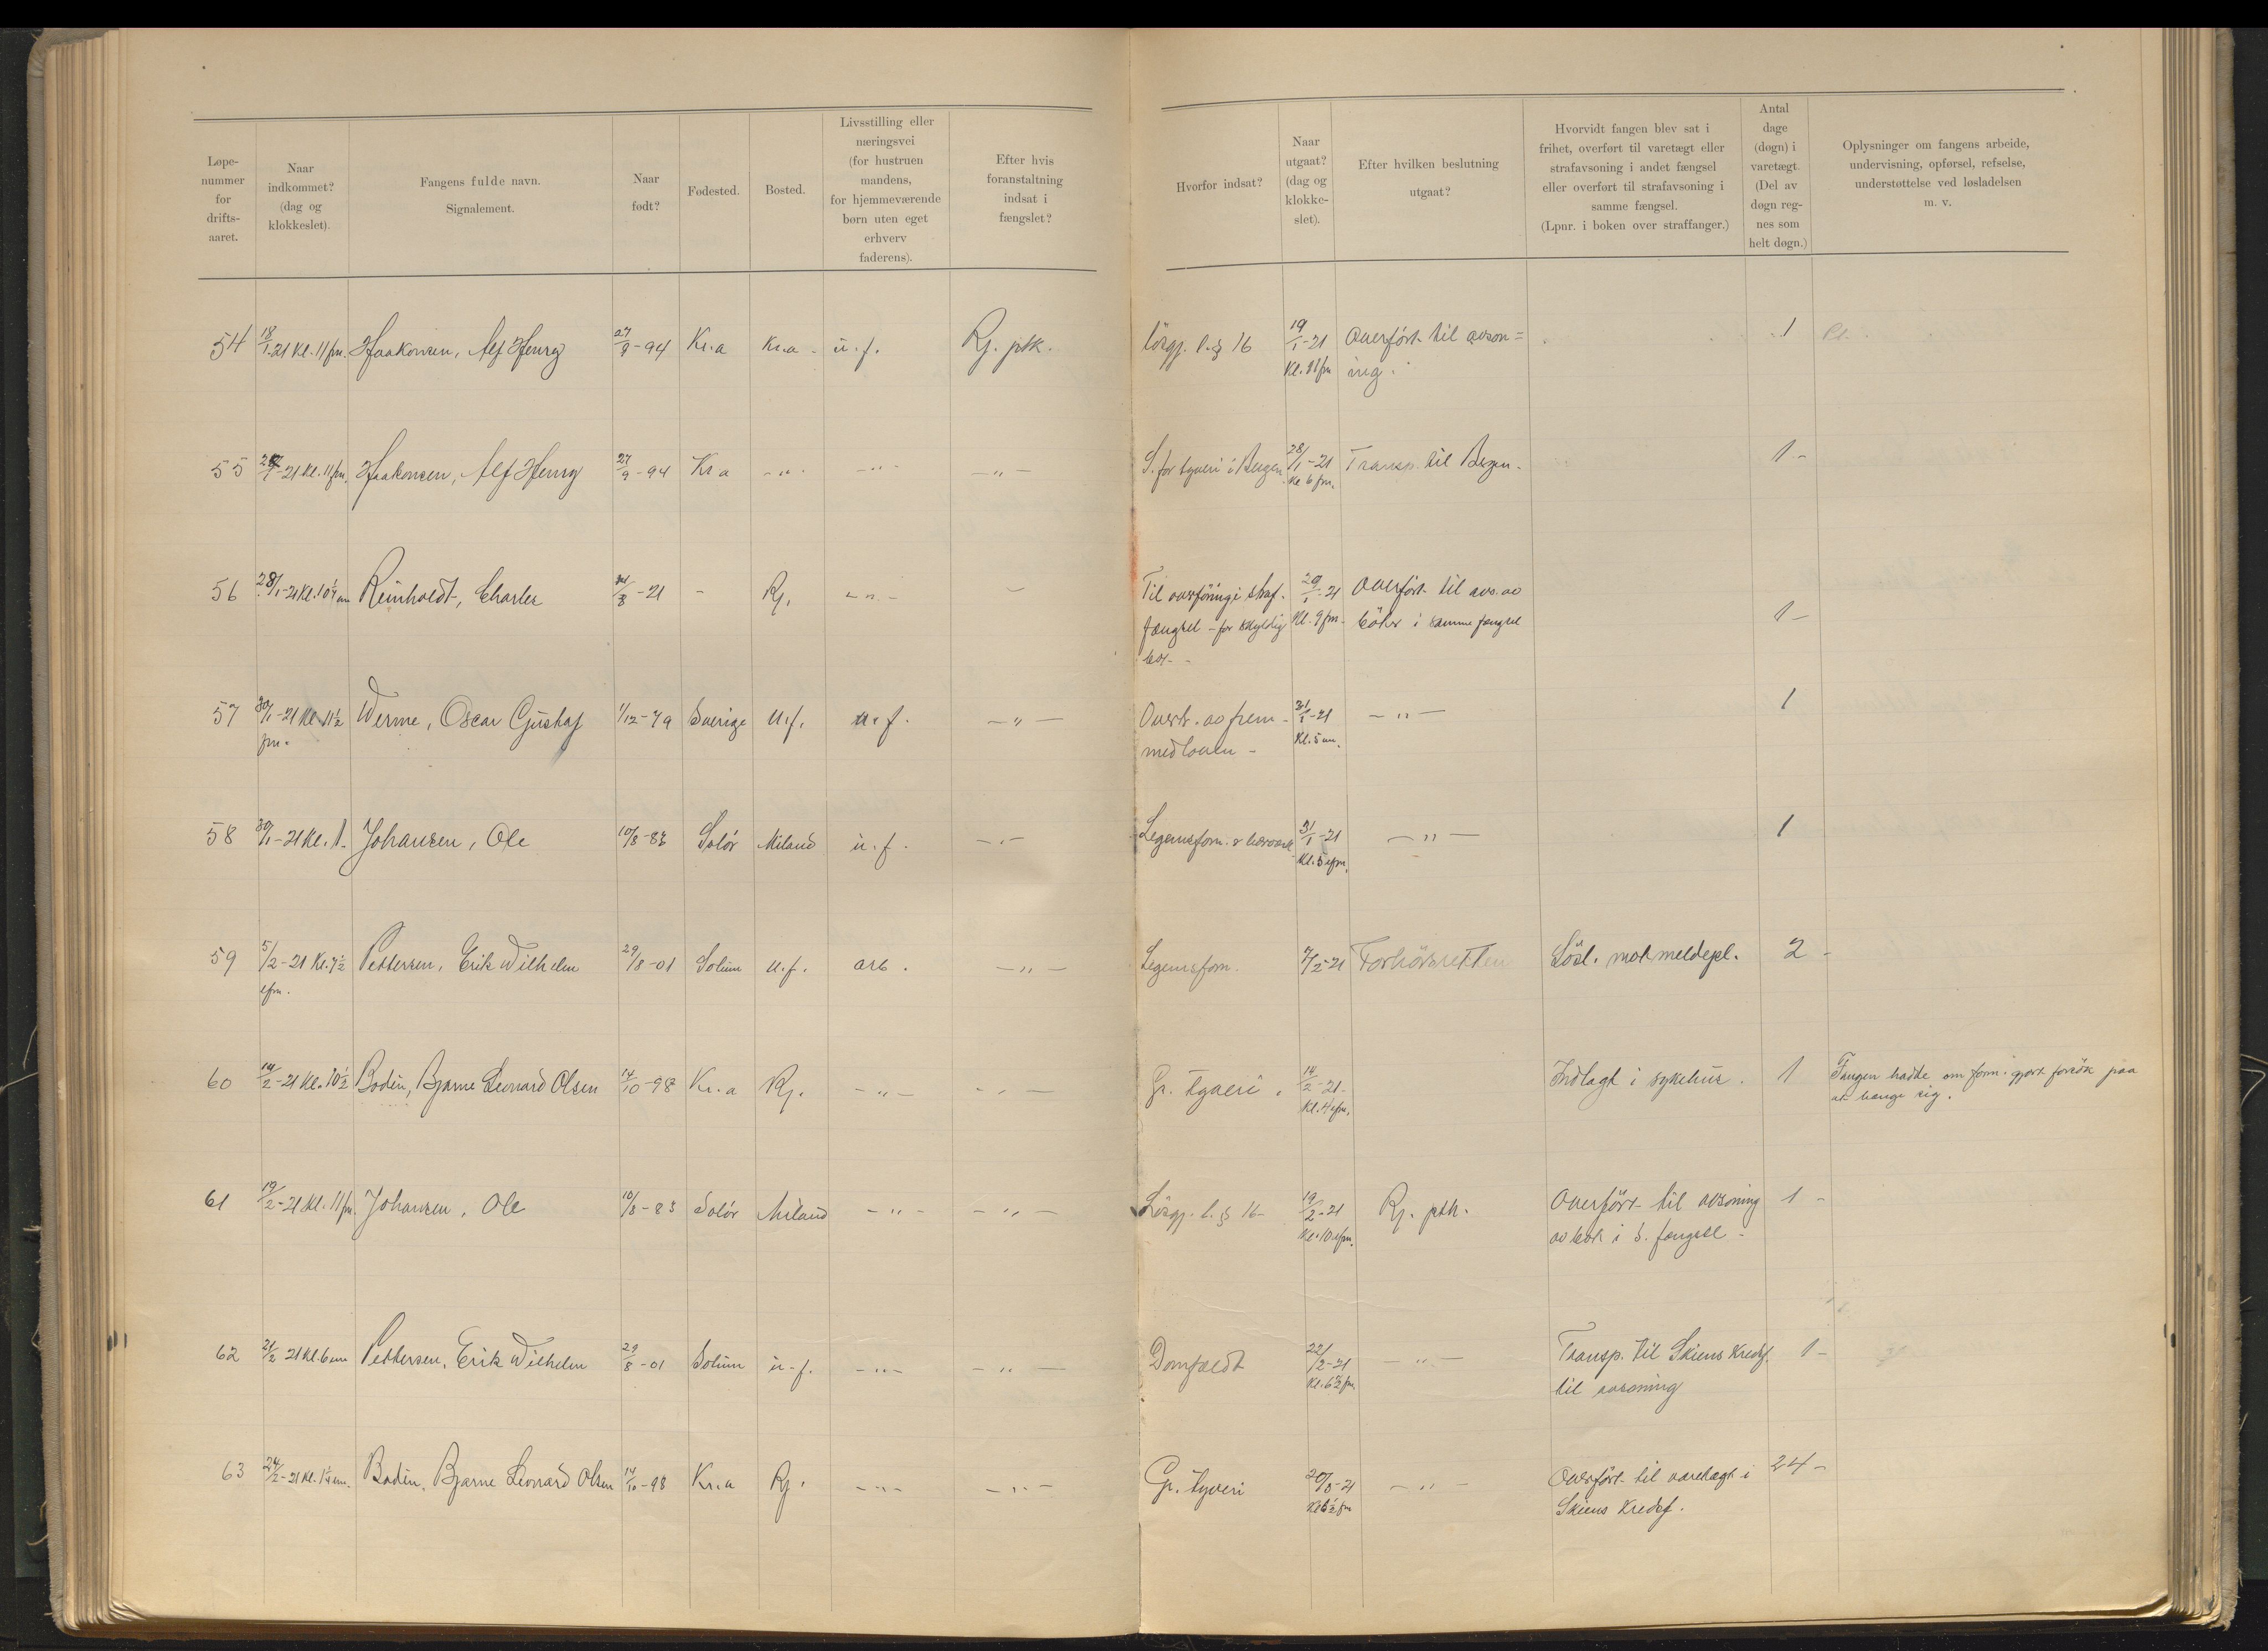 Løpe-
nummer
for
drifts-
aaret.
Naar
indkommet?
(dag og
klokkeslet).
Fangens fulde navn.
Signalement.
Naar
født?
Fødested.
Bosted.
Livsstilling eller
næringsvei
(for hustruen
mandens,
for hjemmeværende
børn uten eget
erhverv
faderens).
Efter hvis
foranstaltning
indsat i
fængslet?
Hvorfor indsat?
Naar
utgaat?
(dag og
klokke-
slet).
Efter hvilken beslutning
utgaat?
Hvorvidt fangen blev sat i
frihet, overført til varetægt eller
strafavsoning i andet fængsel
eller overført til strafavsoning i
samme fængsel.
(Lpnr. i boken over straffanger.)
Antal
dage
(døgn) i
varetægt.
(Del av
døgn reg-
nes som
helt døgn.)
Oplysninger om fangens arbeide,
undervisning, opførsel, refselse,
understøttelse ved løsladelsen
m. v.
54 18/1-21 Kl. 11 fm. Haakonsen, Alf Henry 27/9-94 Kr.a Kr.a - u. f. Rj. ptk. Løsgj. l. § 16 19/1-21 Overført til avson= 1
Kl. 11 fm ing.
55 /1-21 Kl. 11 fm. Haakonsen, Alf Henry 27/9-94 Kr a - " - - " - - " - S. for tyveri i Bergen 28/1-21 Transp. til Bergen. 1 -
Kl 6 fm.
56 28/1-21 Kl. 10 Reinholdt, Charles /8-21 - Rj. - " - - Til overføring i straf. 29/1-21 Overført til avs. av
fængsel - for skyldig Kl. 9 fm. bøter i samme fængsel 1 -
bot -
57 30/1-21 Kl 11 1/2 Werme, Oscar Gustaf 1/12-79 Sverige u. f. u. f. - " - Overtr. av frem- 31/1-21 - " - 1
fm. medloven - Kl. 5 em.
58 30/1-21 Kl. 1. Johansen, Ole 10/8-83 Solør Miland u. f. - " - Legemsforn. 31/1-21 - " - 1
Kl. 5 efm.
59 5/2-21 Kl. 7 1/2 Pettersen, Erik Wilhelm 29/8-01 Solum u. f. arb. - " - Legemsforn. 7/2-21 Forhørsretten Løsl. mot meldepl. 2 -
efm.
60 14/2-21 Kl. 10 1/2 Bodin, Bjarne Leonard Olsen 14/10-98 Kr. a Rj. - " - - " - Gr. tyveri. 14/2-21 Indlagt i sykehus. 1 Fangen hadde om form. gjort forsøk paa
Kl. 4 efm. at hænge sig.
61 19/2-21 Kl. 11 fm. Johansen, Ole 10/8-83 Solør Miland - " - - " - Løsgj. l. § 16 - 19/2-21 Rj. ptk. Overført til avsoning 1 -
Kl. 10 efm. av bot i S. fængsel -
62 21/2 21 Kl. 6 em Pettersen, Erik Wilhelm 29/8-01 Solum u - f. - " - - " - Domfældt 22/2-21 - " - Transp. til Skiens Kredsf. 1 -
Kl. 6 1/2 fm til avsoning
63 24/2-21 Kl. em. Bodin, Bjarne Leonard Olsen 14/10-98 Kr. a Rj. - " - - " - Gr. tyveri 20/3-21 - " - Overført til varetægt i 24 -
Kl 6 1/2 fm Skiens Kredsf.